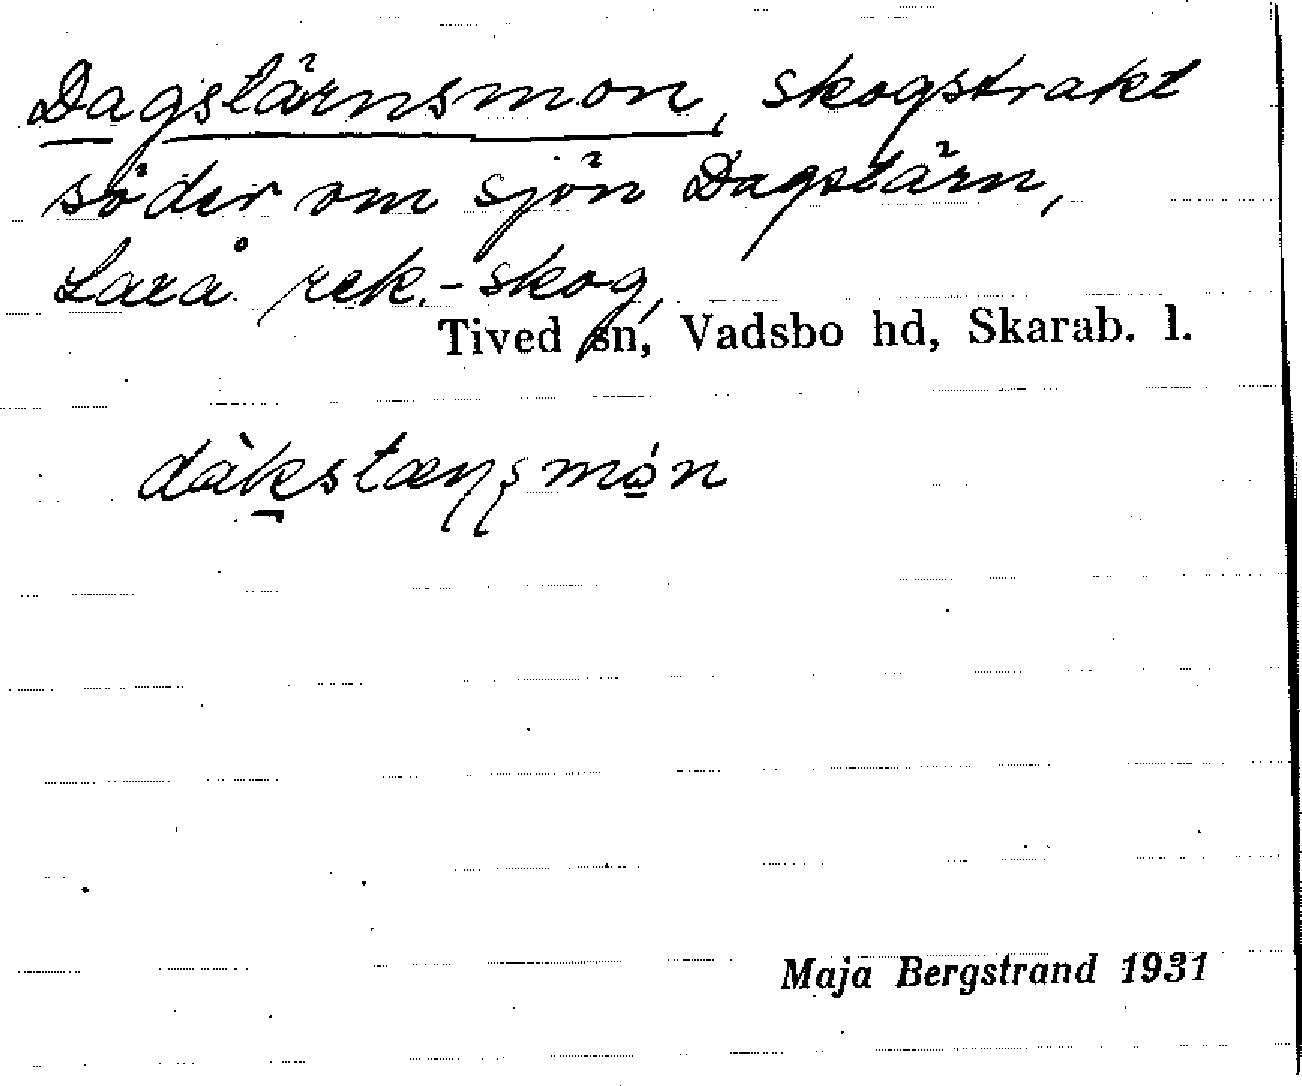 Dagstärnsmon, skogstrakt
söder om sjön Dagstärn,
Laxå rek.-skog,
Tived sn, Vadsbo hd, Skarab. l.
dàk̠stæɳʂmó̠n
Maja Bergstrand 1931